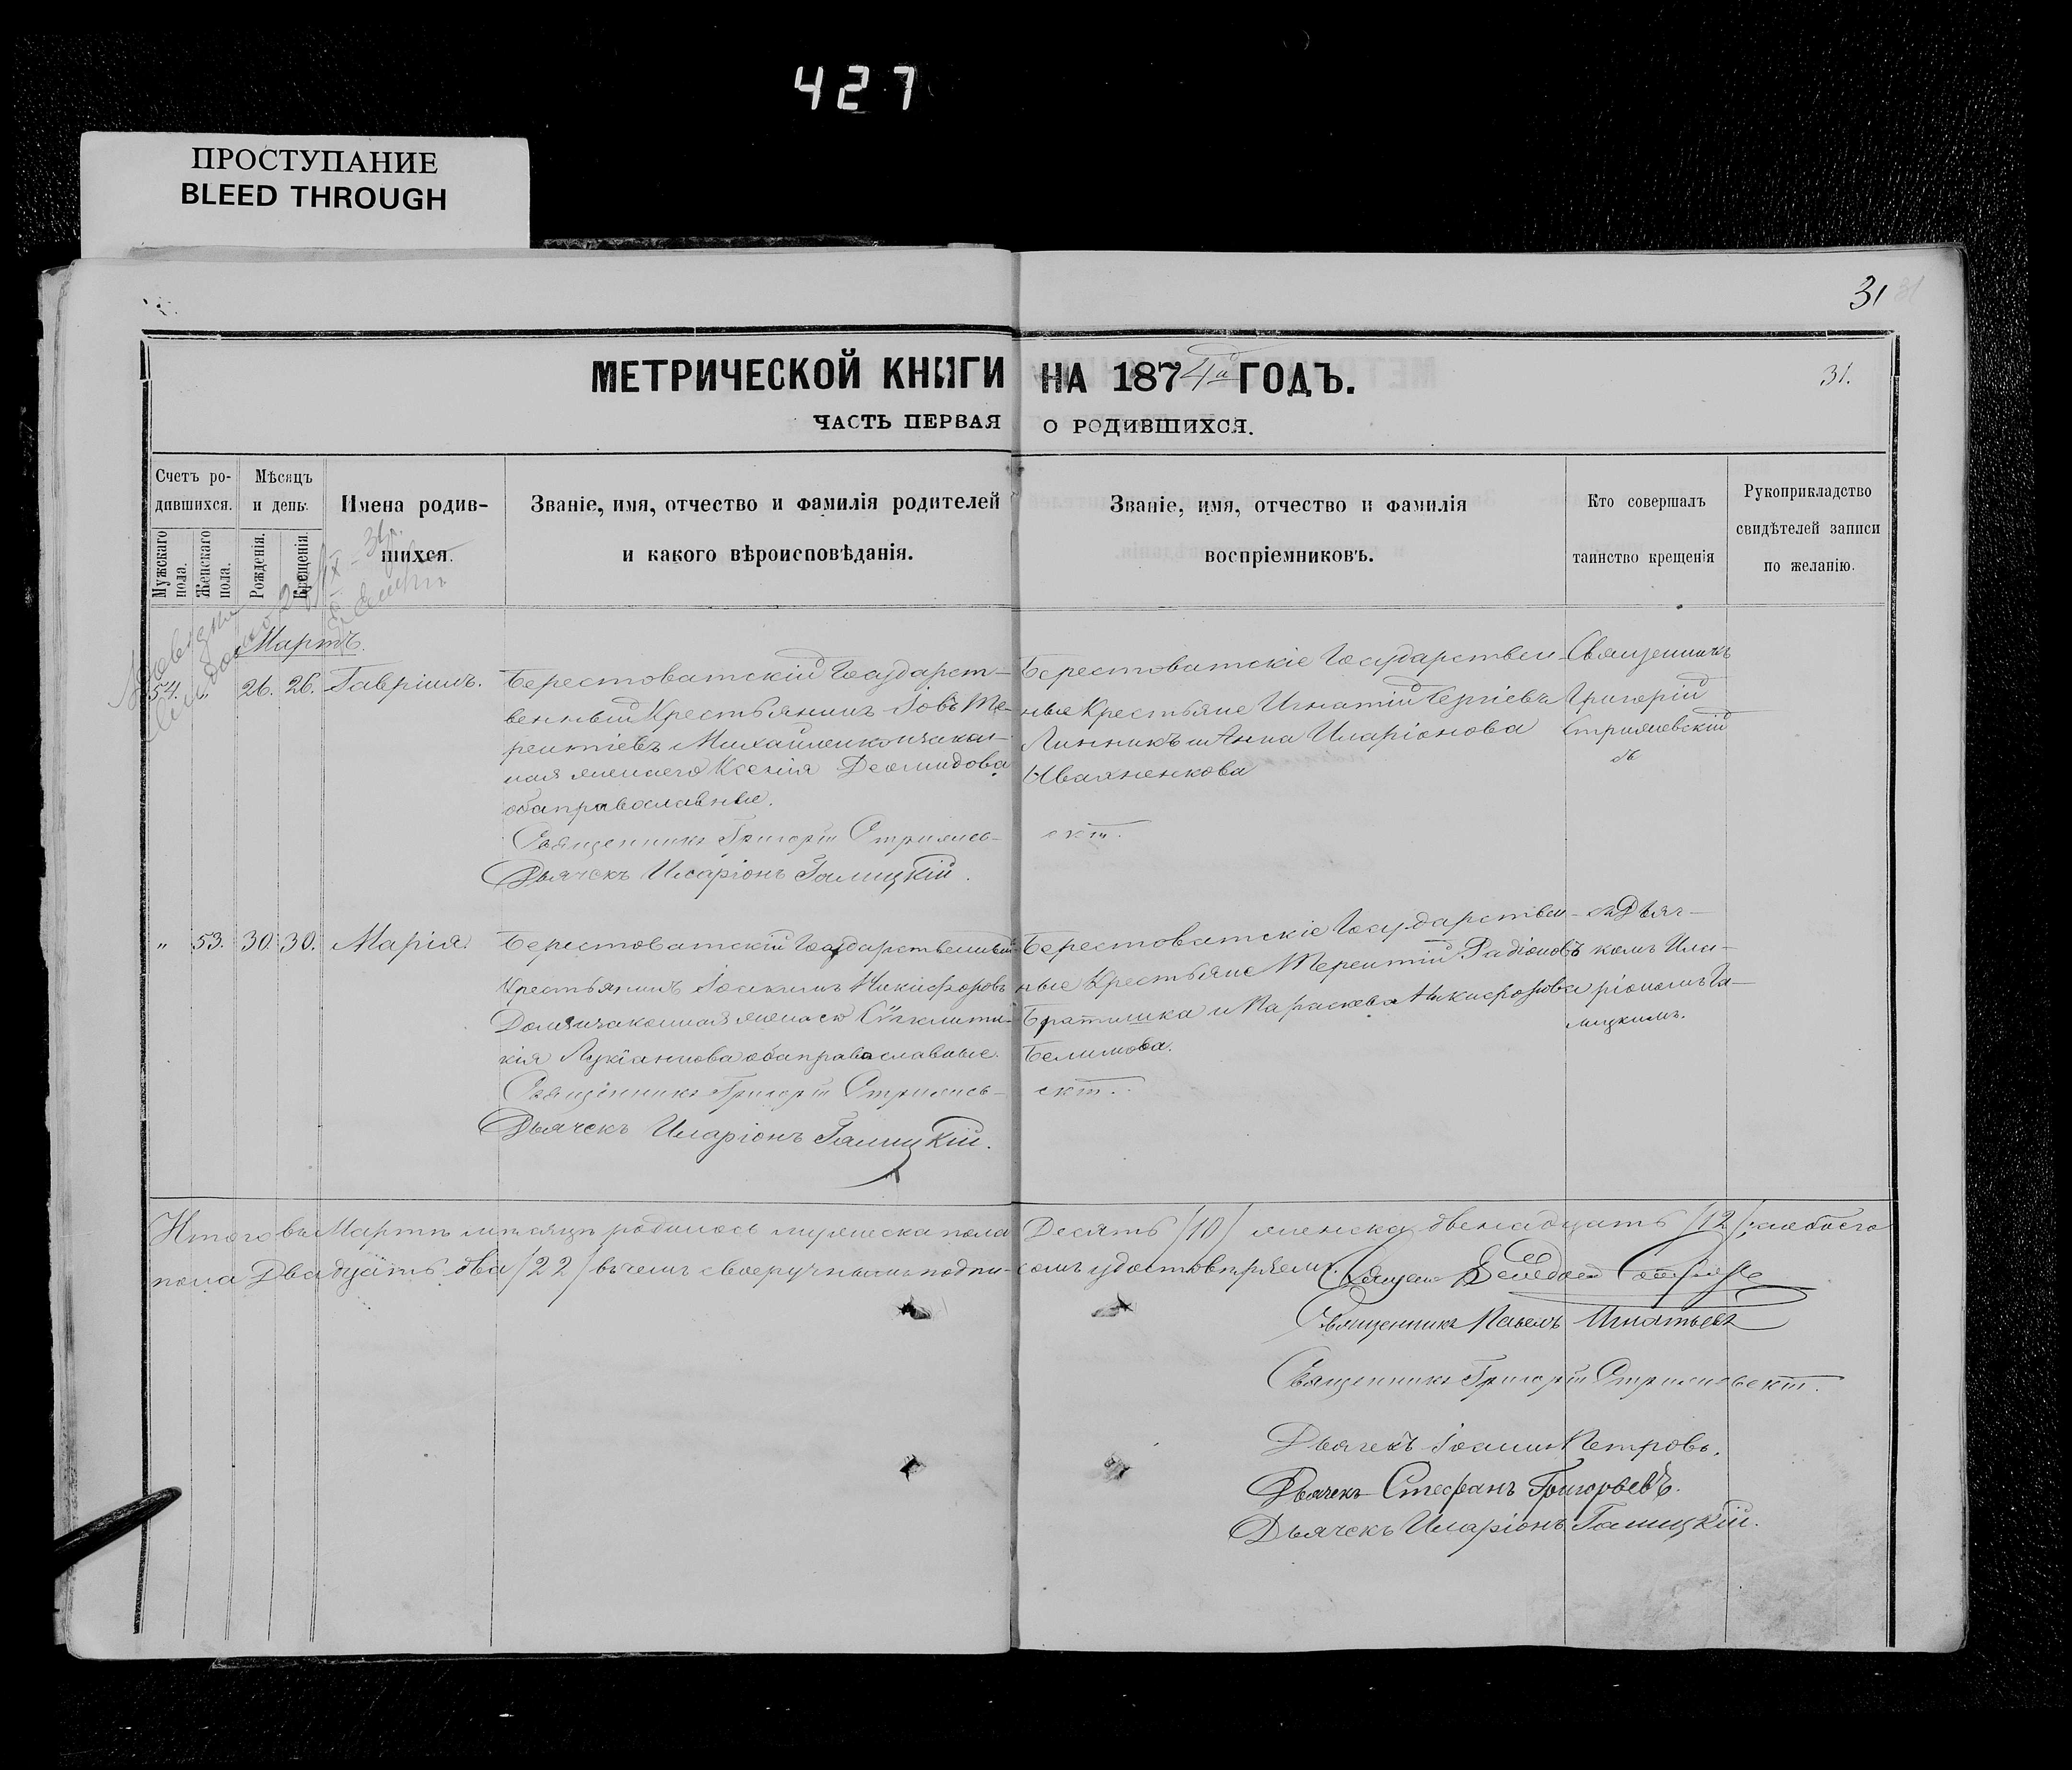 427
ПРОСТУПАНИЕ
BLEED THROUGH
31
31
МЕТРИЧЕСКОЙ КНИГИ НА 1874й ГОДЪ.
31.
ЧАСТЬ ПЕРВАЯ О РОДИВШИХСЯ.
Счетъ родившихся.
Мужскаго пола.
Женскаго пола.
Мѣсяцъ и день.
Рожденія.
Крещенія.
Имена родив-
шихся.
Званіе, имя, отчество и фамилія родителей
и какого вѣроисповѣданія.
Званіе, имя, отчество и фамилія
воспріемниковъ.
Кто совершалъ
таинство крещенія
Рукоприкладство
свидѣтелей записи
по желанію.
Мартъ.
54. " 26. 26. Гавріилъ.
Берестоватскій Государст-
венный Крестьянинъ Іовъ Те-
рентіевъ Михайленко и закон-
ная жена его Ксенія Деомидова
оба православные.
Священникъ Григорій Стрижев-
скій.
Дьячекъ Иларіонъ Галицкій.
Берестоватскіе Государствен-
ные Крестьяне Игнатій Сергіевъ
Линникъ и Анна Иларіонова
Иваненкова
Священникъ
Григорій
Стрижевскій
съ
" 53. 30. 30. Марія.
Берестоватскій Государственный
Крестьянинъ Іоакимъ Никифоровъ
Доля и законная жена его Сигклити-
кія Лукіанова оба православные.
Священникъ Григорій Стрижев-
скій.
Дьячекъ Иларіонъ Галицкій.
Берестоватскіе Государствен-
ные Крестьяне Терентій Радіоновъ
Братишка и Параскева Никифорова
Белимова.
съ Дьяч-
комъ Ила-
ріономъ Га-
лицкимъ.
Итого въ Мартѣ мѣсяцѣ родилось мужеска пола Десять /10/ женска двенадцать /12/; а обоего
пола Двадцать два /22/ въ чемъ своеручнымъ подпи-сомъ удостовѣряемъ.
Священникъ Павелъ Игнатьевъ
Священникъ Григорій Стрижевскій.
Дьячекъ Іоаннъ Петровъ.
Дьячекъ Стефанъ Григорьевъ.
Дьячекъ Иларіонъ Галицкій.